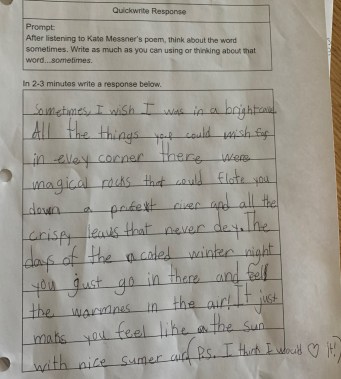 Quickwrite Response
Prompt:
After listening to Kate Messner's poem, think about the word
sometimes. Write as much as you can using or thinking about that
word...sometimes.
In 2-3 minutes write a response below.
Sometimes I wish I was in a bright
All the things you could wish for
in evey corner there were
magical rocks that could flote you
down a river and all the
crispy leaus that never dey. The
days of the coled winter night
you gust go in there and feel
the warmnes in the air! It just
maks you feel like the sun
with nice sumer air (P.S. I think I would ♡ it!)